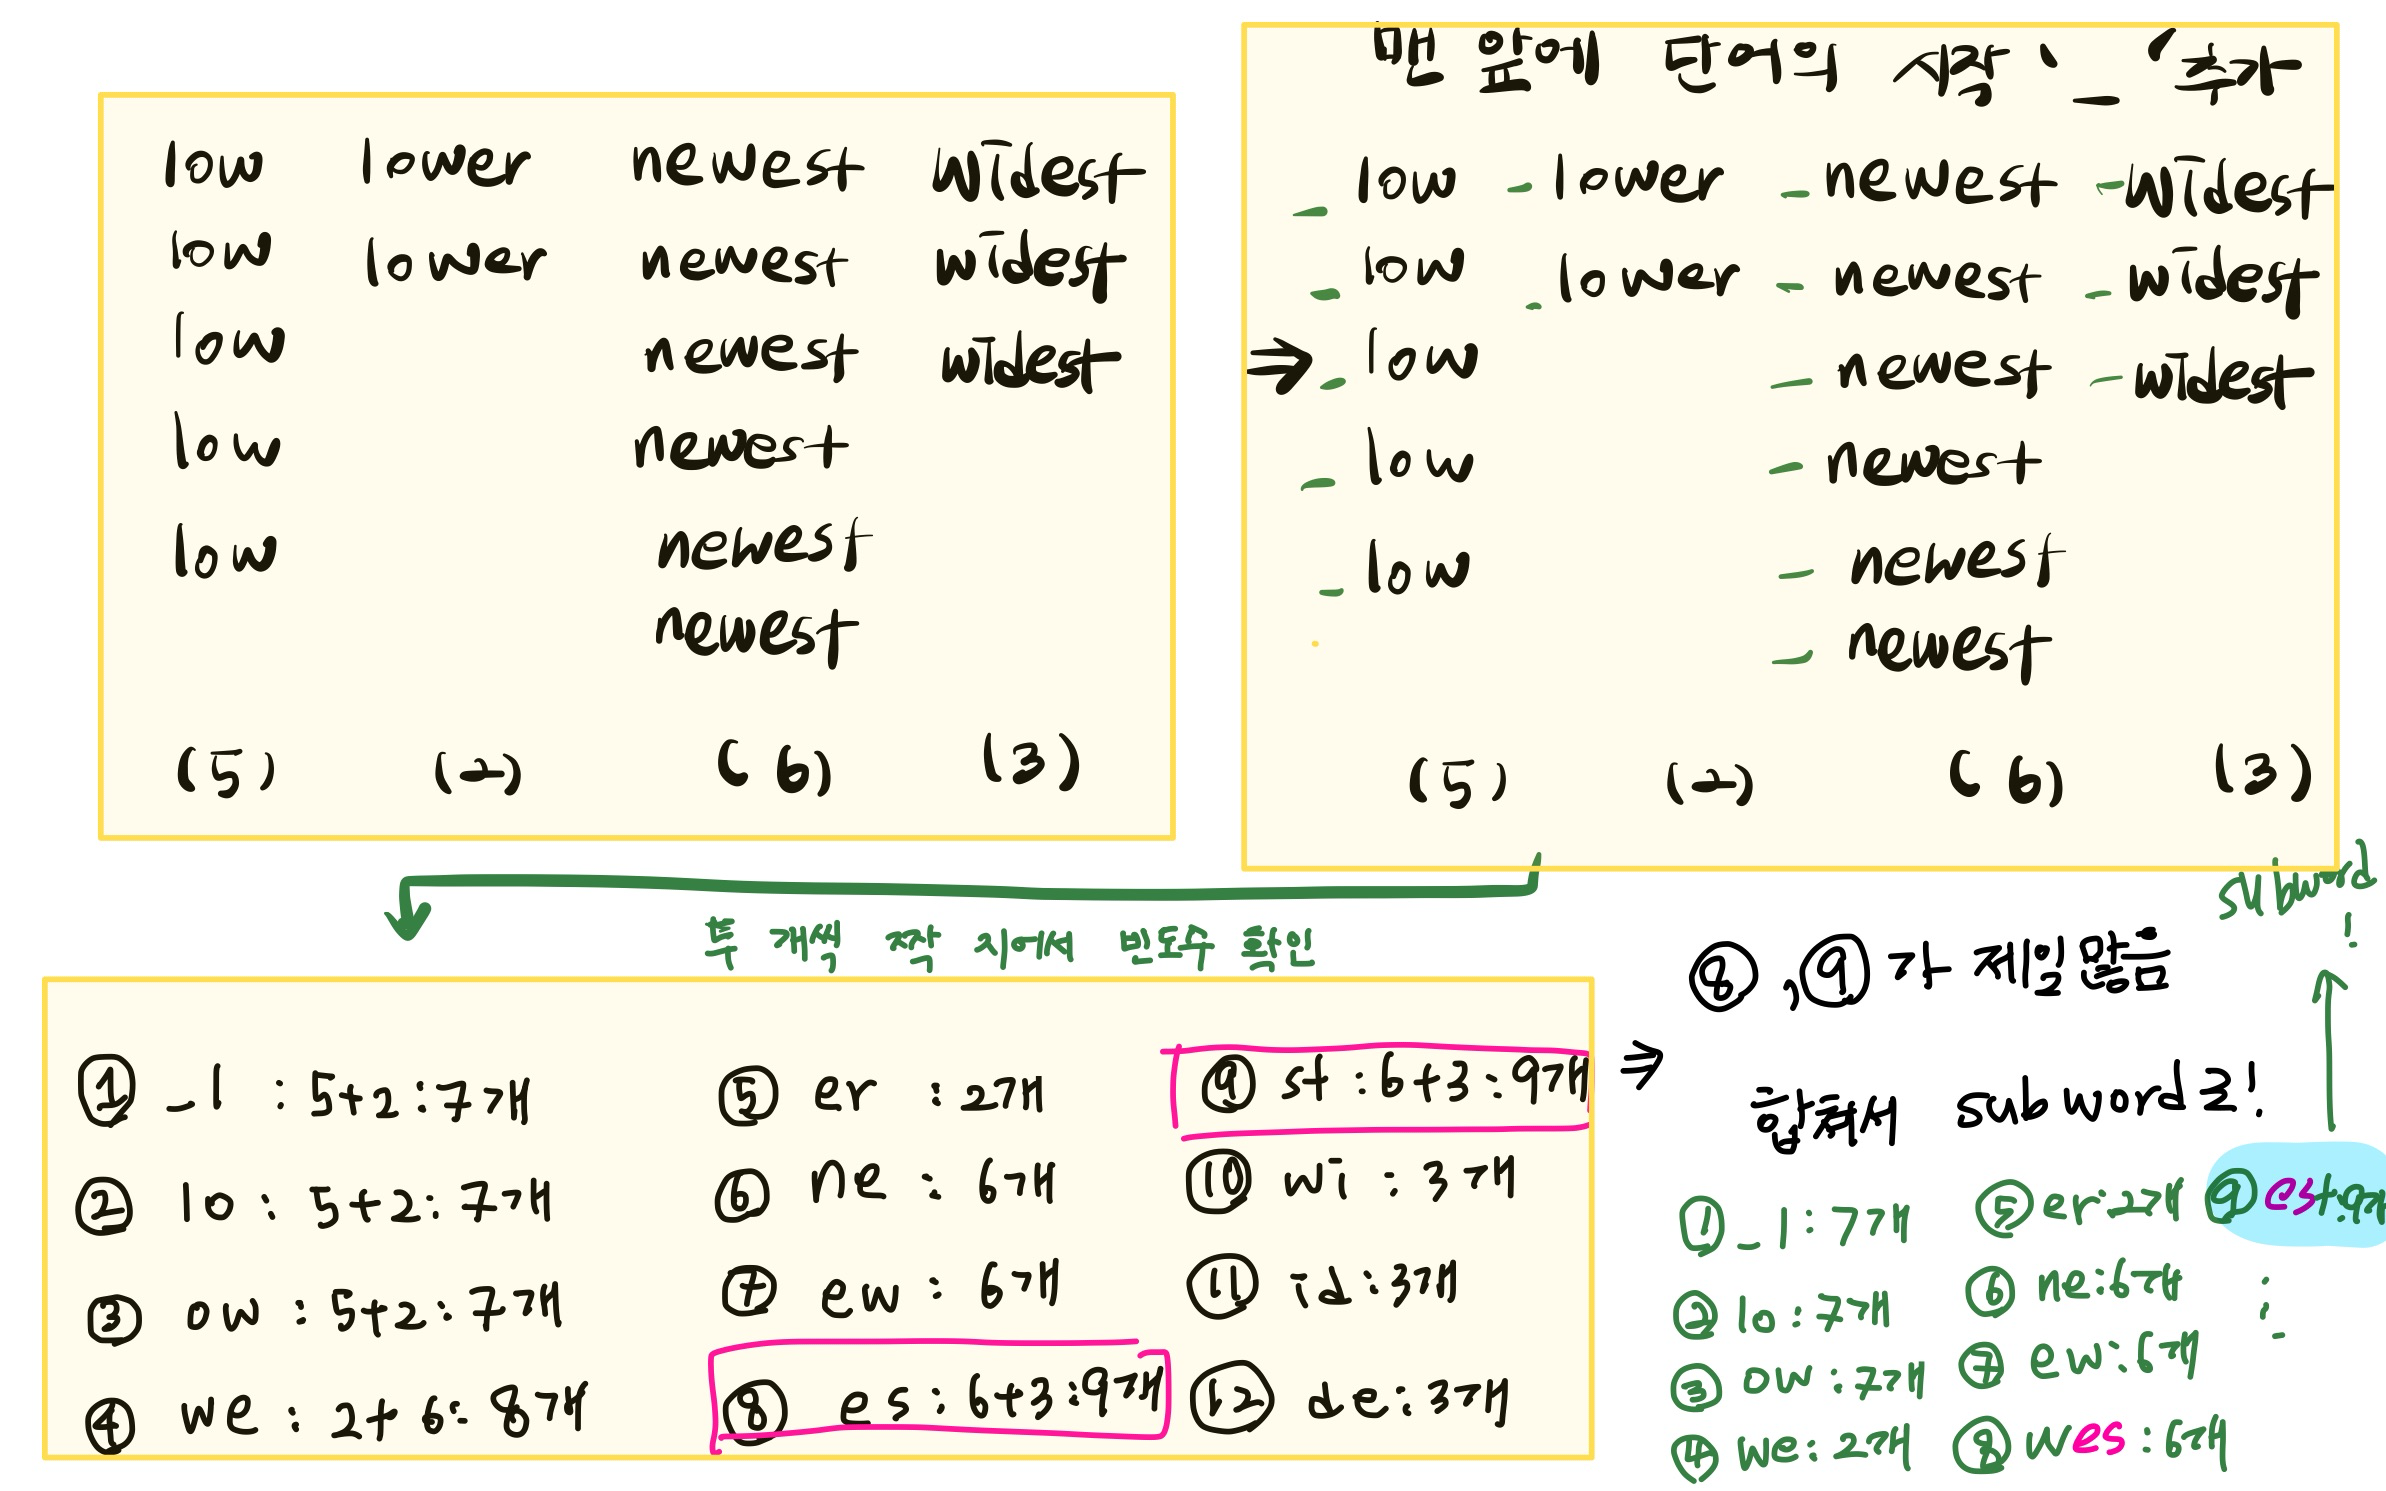 low lower newest widest
low lower newest widest
low newest widest
low newest
low newest
newest
(5) (2) (6) (3)
맨 앞에 단어의 시작 '_' 추가
_low _lower _newest _widest
_low _lower _newest _widest
_low _newest _widest
_low _newest
_low _newest
_newest
(5) (2) (6) (3)
두 개씩 짝 지어서 빈도수 확인
① _l : 5+2 : 7개
② lo : 5+2 : 7개
③ ow : 5+2 : 7개
④ we : 2+6 : 8개
⑤ er : 2개
⑥ ne : 6개
⑦ ew : 6개
⑧ es : 6+3 : 9개
⑨ st : 6+3 : 9개
⑩ wi : 3개
⑪ id : 3개
⑫ de : 3개
⑧, ⑨가 제일 많음
합쳐서 subword로!
① _l : 7개
② lo : 7개
③ ow : 7개
④ we : 2개
⑤ er : 2개
⑥ ne : 6개
⑦ ew : 6개
⑧ wes : 6개
⑨ est : 9개
subword
!